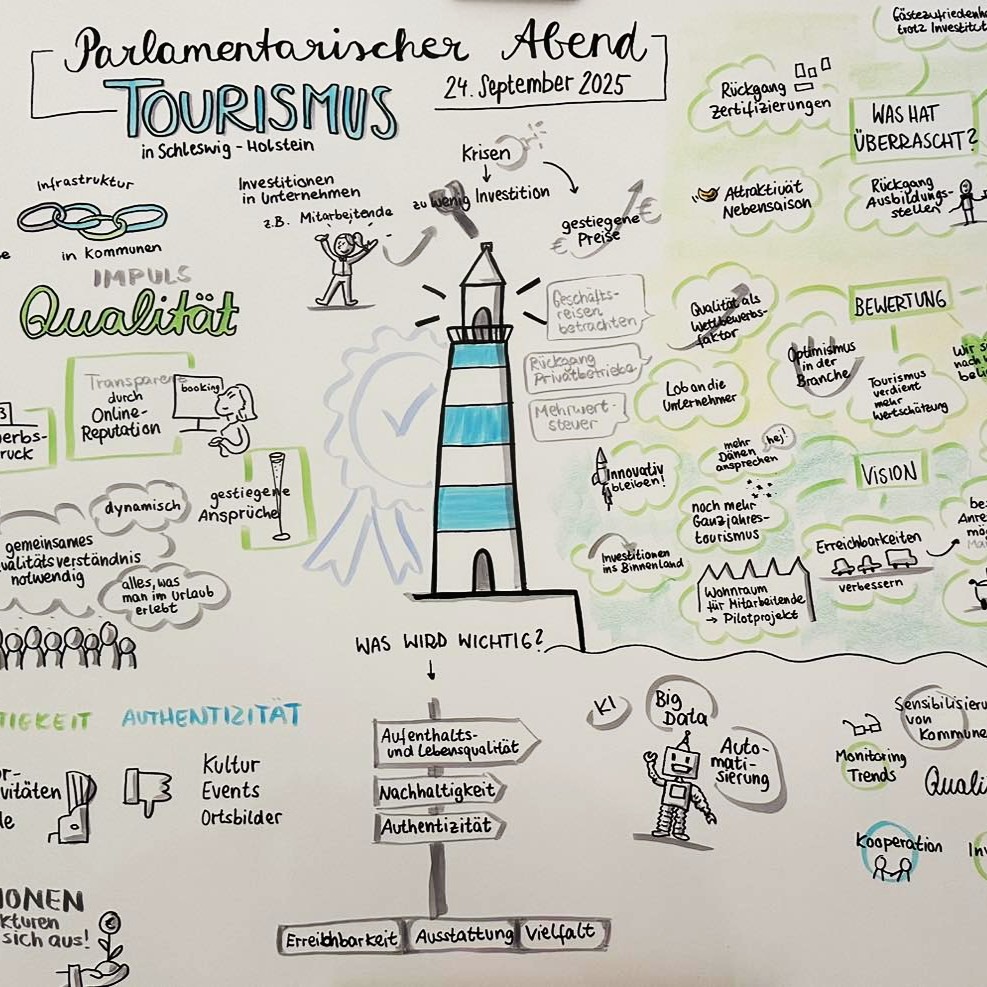 Parlamentarischer Abend
TOURISMUS
24. September 2025
in Schleswig-Holstein
Infrastruktur
in Kommunen
Investitionen
in Unternehmen
z.B. Mitarbeitende
Krisen
zu wenig Investition
gestiegene
Preise
€
€
IMPULS
Qualität
Transparenz
durch
Online-
Reputation
booking
gestiegene
Ansprüche
dynamisch
gemeinsames
Qualitätsverständnis
notwendig
alles, was
man im Urlaub
erlebt
Geschäfts-
reisen
betrachten
Rückgang
Privatbetriebe
Mehrwert-
steuer
Rückgang
Zertifizierungen
WAS HAT
ÜBERRASCHT?
Attraktivität
Nebensaison
Rückgang
Ausbildungs-
stellen
BEWERTUNG
Qualität als
Wettbewerbs-
faktor
Optimismus
in der
Branche
Lob an die
Unternehmer
Tourismus
verdient
mehr
Wertschätzung
VISION
Innovativ
bleiben!
mehr
Dänen
ansprechen
hej!
noch mehr
Ganzjahres-
tourismus
Investitionen
ins Binnenland
Wohnraum
für Mitarbeitende
→ Pilotprojekt
Erreichbarkeiten
verbessern
WAS WIRD WICHTIG?
Aufenthalts-
und Lebensqualität
Nachhaltigkeit
Authentizität
Erreichbarkeit
Ausstattung
Vielfalt
AUTHENTIZITÄT
Kultur
Events
Ortsbilder
sich aus!
KI
Big
Data
Auto-
mati-
sierung
Monitoring
Trends
von
Kooperation